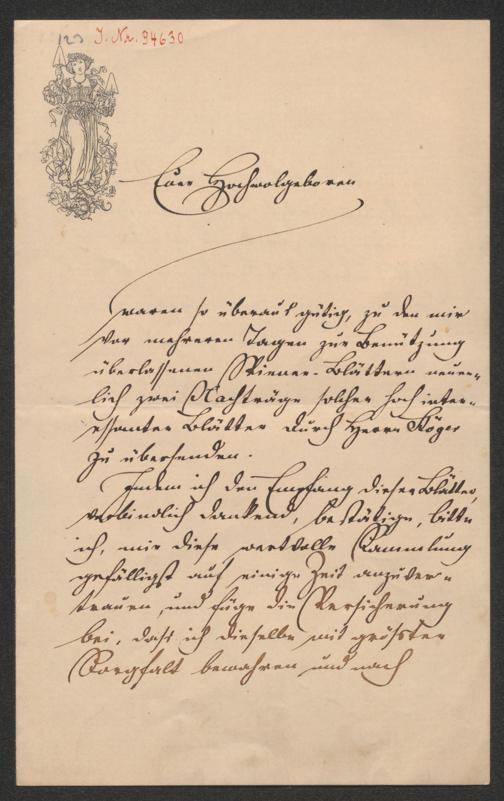 123 J. Nr. 94630
Euer Hochwolgeboren
waren so überaus gütig, zu den mir
vor mehreren Tagen zur Benützung
überlassenen Wiener-Blättern neuer-
lich zwei Nachträge solcher hochinter-
essanter Blätter durch Herrn Köger
zu übersenden.
Indem ich den Empfang dieser Blätter,
verbindlich dankend, bestätige, bitte
ich, mir diese wertvolle Sammlung
gefälligst auf einige Zeit anzuver-
trauen, und füge die Versicherung
bei, dass ich dieselbe mit grösster
Sorgfalt bewahren und nach